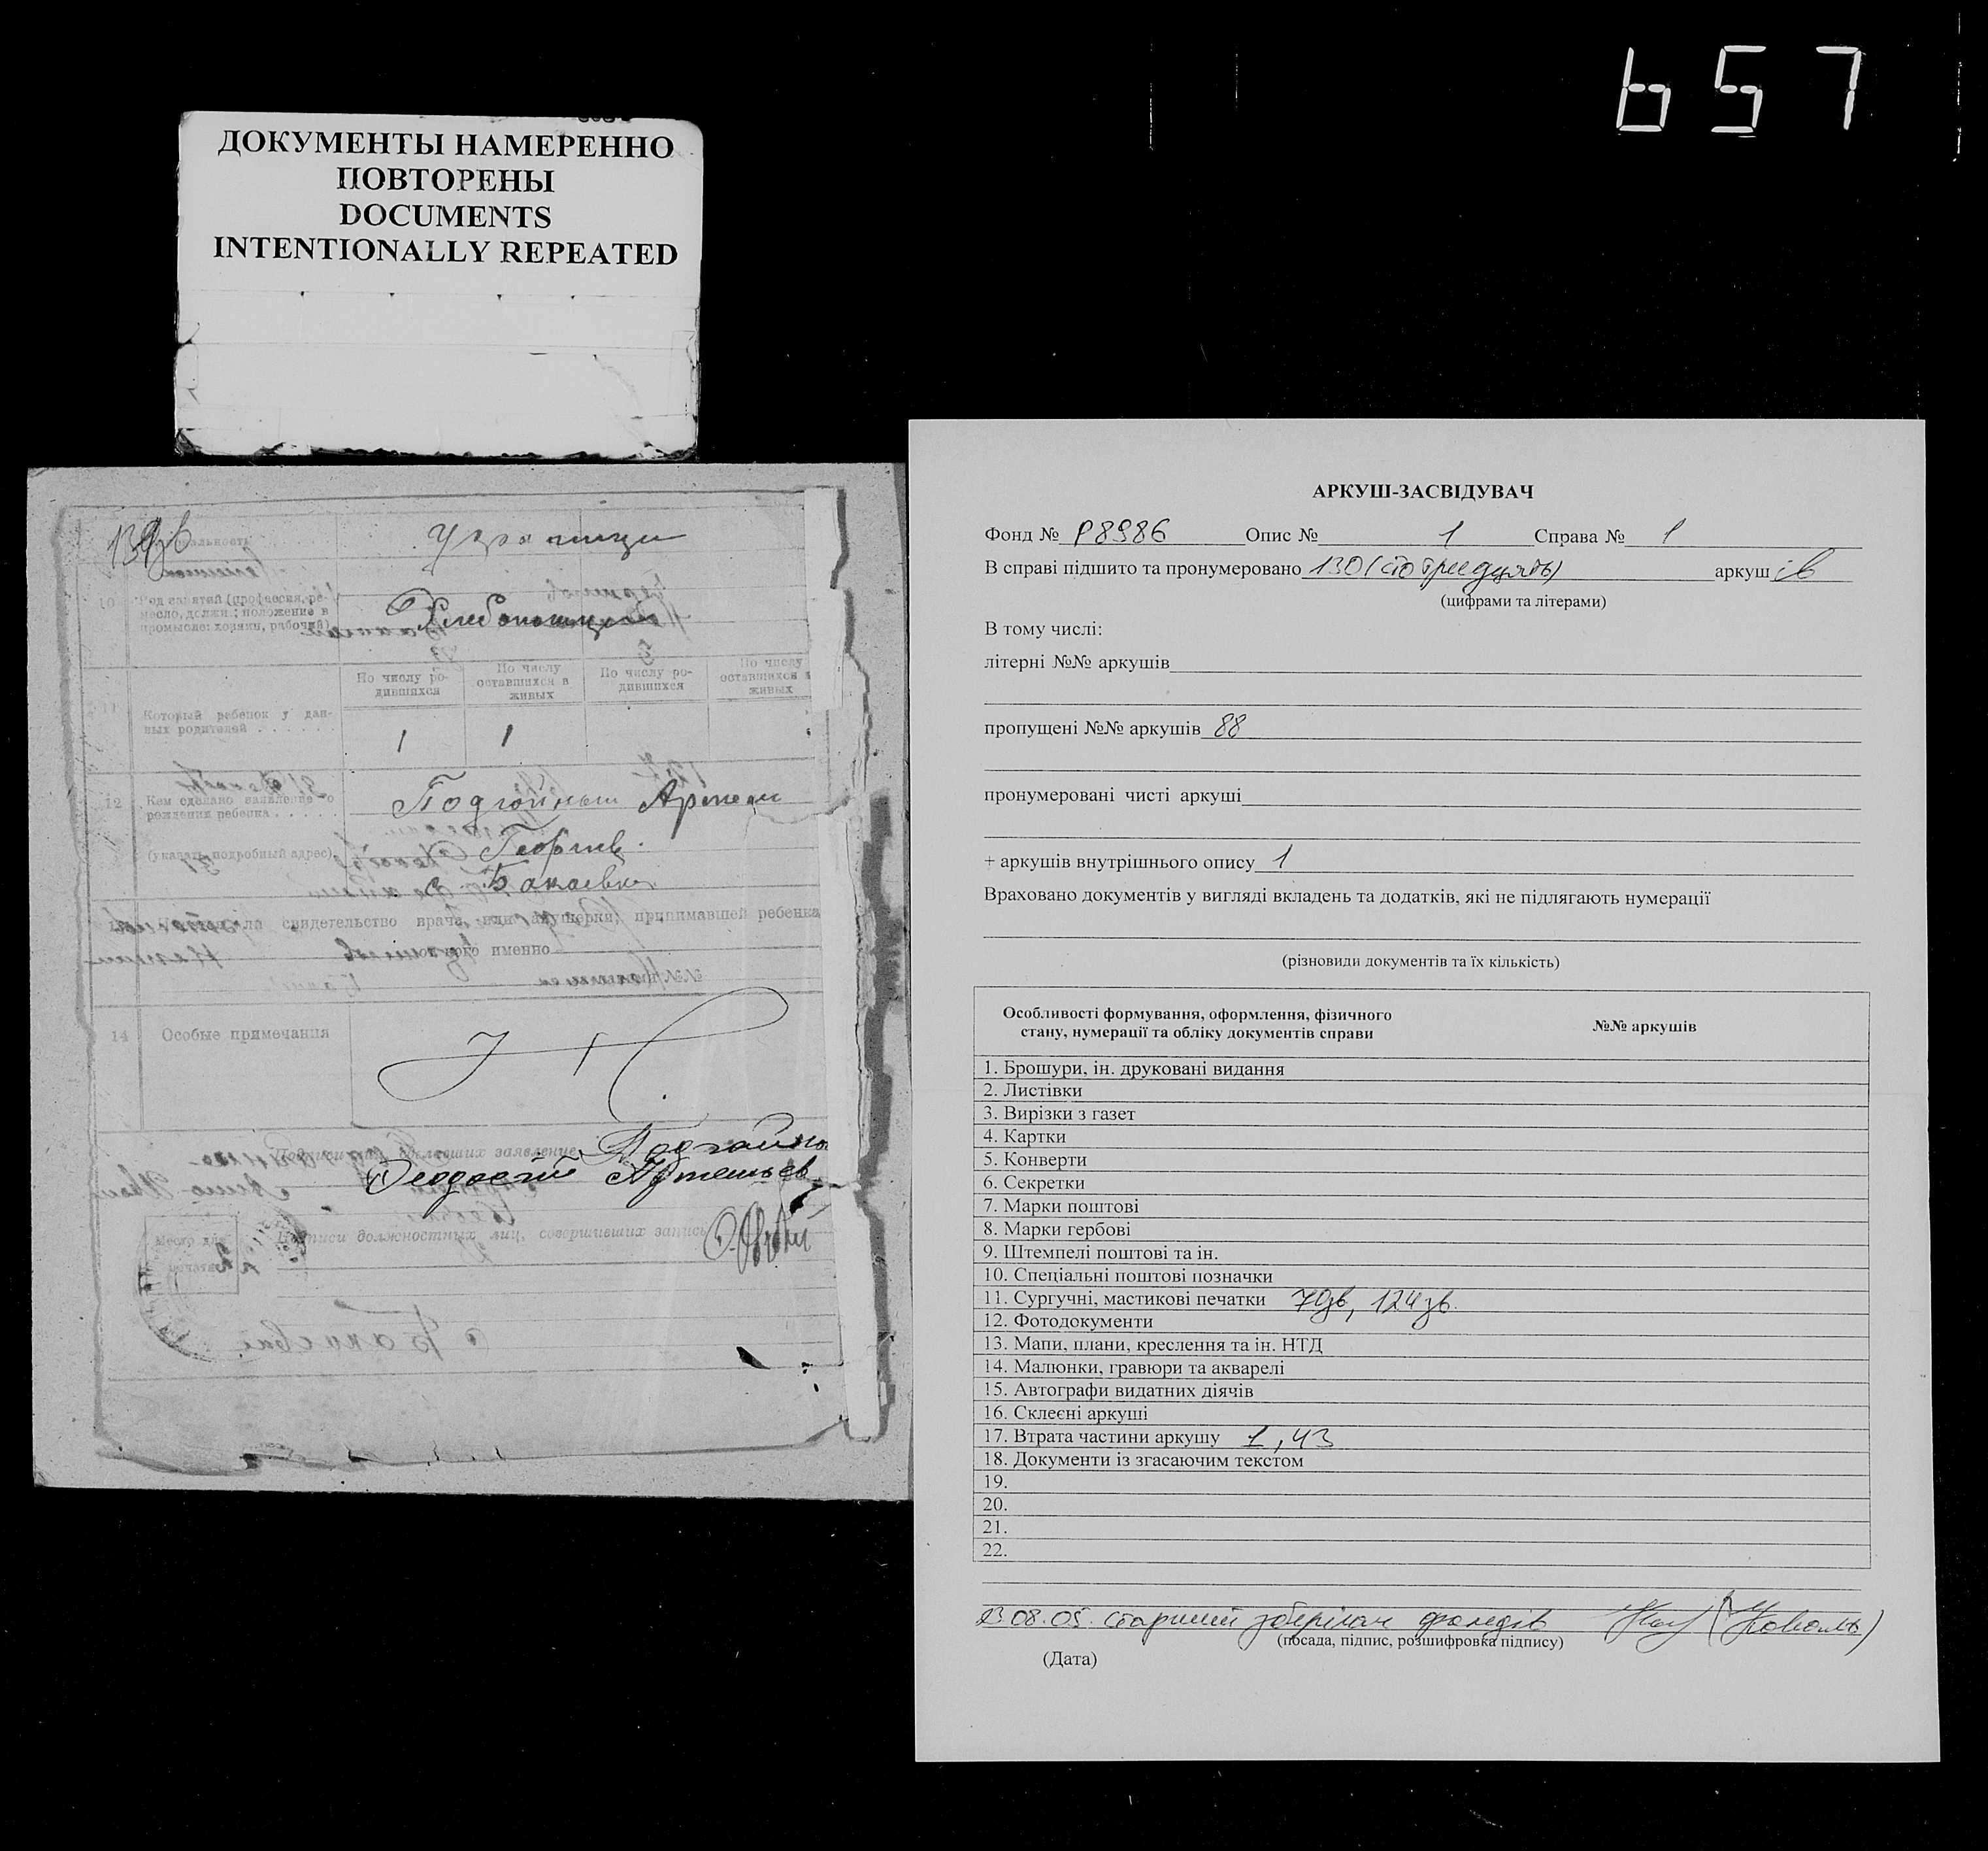 657
ДОКУМЕНТЫ НАМЕРЕННО
ПОВТОРЕНЫ
DOCUMENTS
INTENTIONALLY REPEATED
Украинцы
10 Род занятий (профессия, ре-
месло, должн.; положение в
промысле: хозяин, рабочий)
По числу ро-
дившихся
По числу
оставшихся в
живых
По числу ро-
дившихся
По числу
оставшихся в
живых
Который ребенок у дан-
ных родителей
1 1
12 Кем сделано заявление о
рождении ребенка
Артем
(указать подробный адрес)
Георгиев.
свидетельство врача, или акушерки, принимавшей ребенка
кого именно
14 Особые примечания
заявление
Феодосий Артемьев
Подписи должностных лиц, совершивших запись
Место для
печати
АРКУШ-ЗАСВІДУВАЧ
Фонд № Р8986 Опис № 1 Справа № 1
В справі підшито та пронумеровано 130 (сто тридцять) аркушів
(цифрами та літерами)
В тому числі:
літерні №№ аркушів
пропущені №№ аркушів 88
пронумеровані чисті аркуші
+ аркушів внутрішнього опису 1
Враховано документів у вигляді вкладень та додатків, які не підлягають нумерації
(різновиди документів та їх кількість)
Особливості формування, оформлення, фізичного
стану, нумерації та обліку документів справи
№№ аркушів
1. Брошури, ін. друковані видання
2. Листівки
3. Вирізки з газет
4. Картки
5. Конверти
6. Секретки
7. Марки поштові
8. Марки гербові
9. Штемпелі поштові та ін.
10. Спеціальні поштові позначки
11. Сургучні, мастикові печатки 70зв, 124зв.
12. Фотодокументи
13. Мапи, плани, креслення та ін. НТД
14. Малюнки, гравюри та акварелі
15. Автографи видатних діячів
16. Склеєні аркуші
17. Втрата частини аркушу 1, 43
18. Документи із згасаючим текстом
19.
20.
21.
22.
23.08.05. старший зберігач фондів (Коваль)
(посада, підпис, розшифровка підпису)
(Дата)